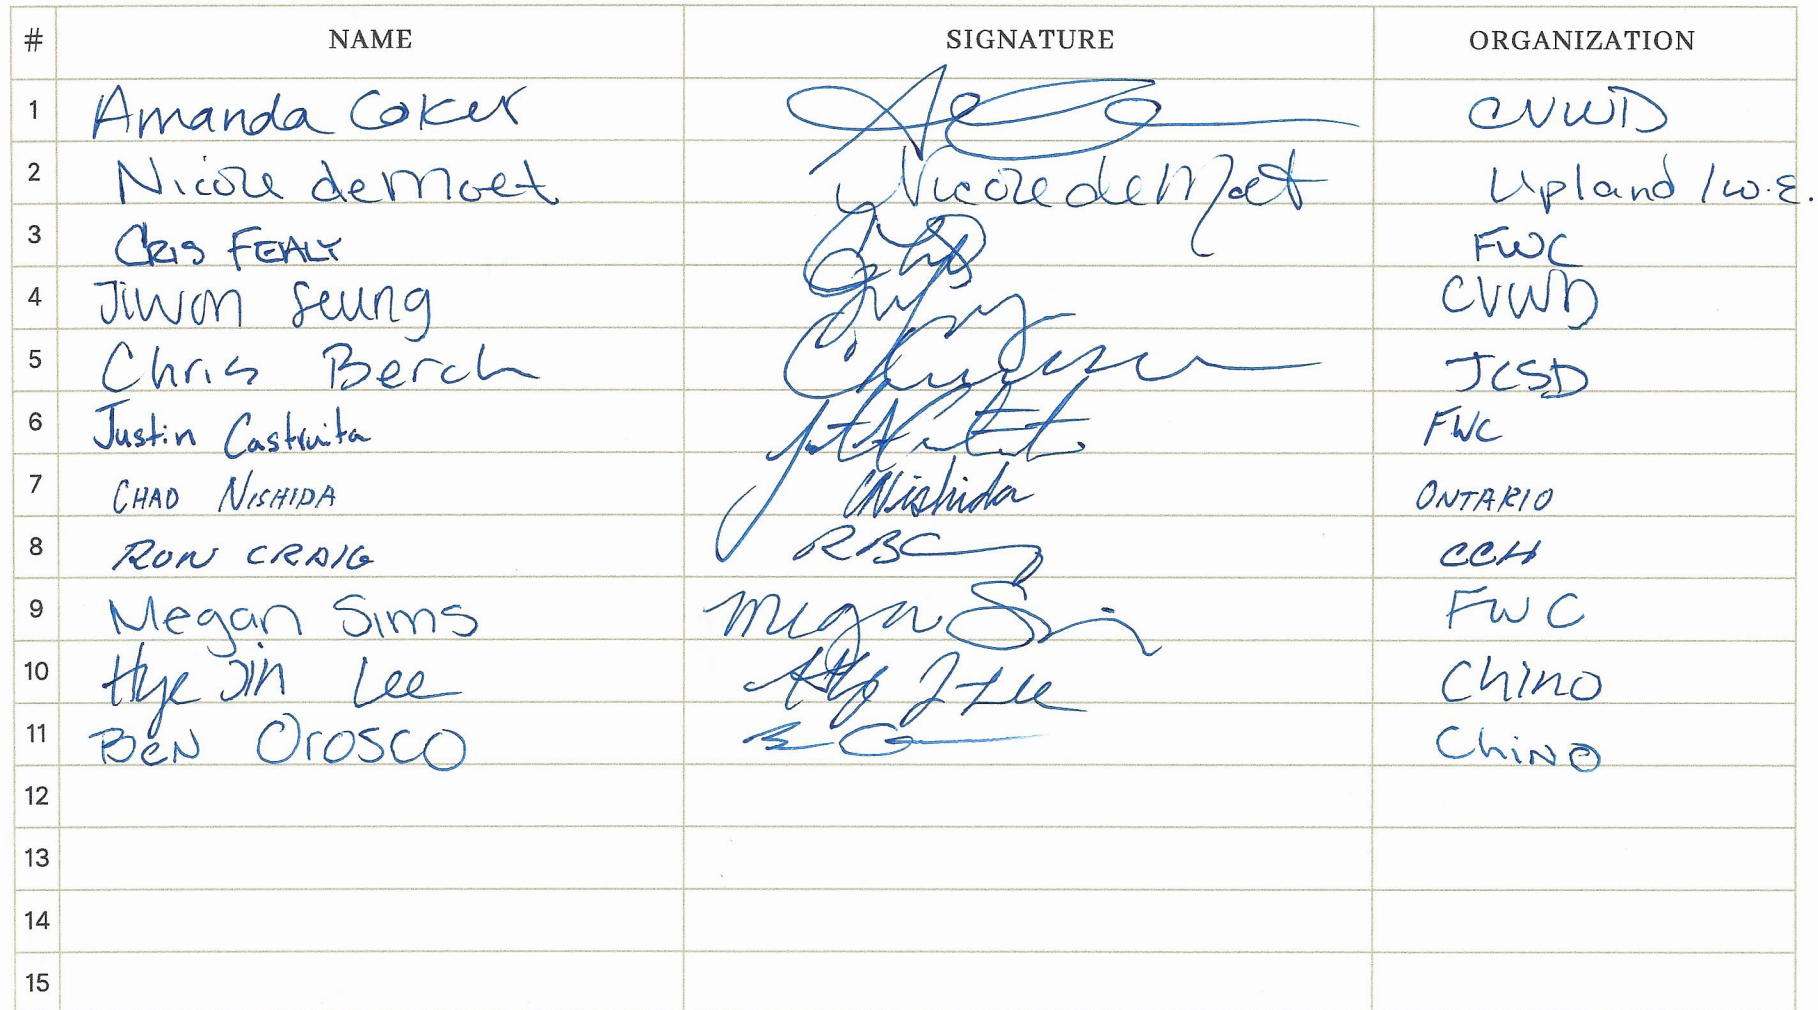 # NAME SIGNATURE ORGANIZATION
1 Amanda Coker CVWD
2 Nicole deMoet Nicole deMoet Upland / W.E.
3 CRIS FEALY FWC
4 Jiwon Seung CVWD
5 Chris Berch JCSD
6 Justin Castruita FWC
7 CHAD NISHIDA CNishida ONTARIO
8 RON CRAIG RBC CCH
9 Megan Sims Megan Sims FWC
10 Hye Jin Lee Hye J Lee Chino
11 BEN OROSCO Chino
12
13
14
15